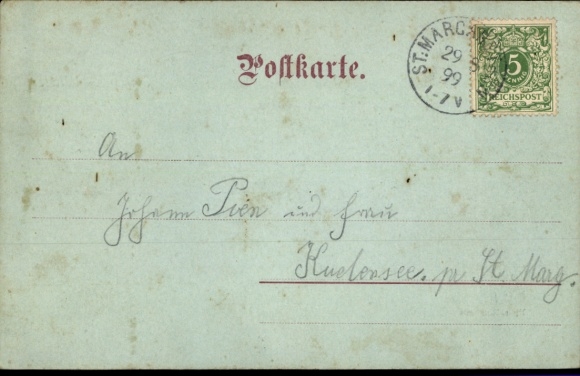 Postkarte.
ST. MARGAR
29
99
1-7 V
5
PFENNIG
REICHSPOST
An
Johann Pien und Frau
Kudensee. pr St. Marg.